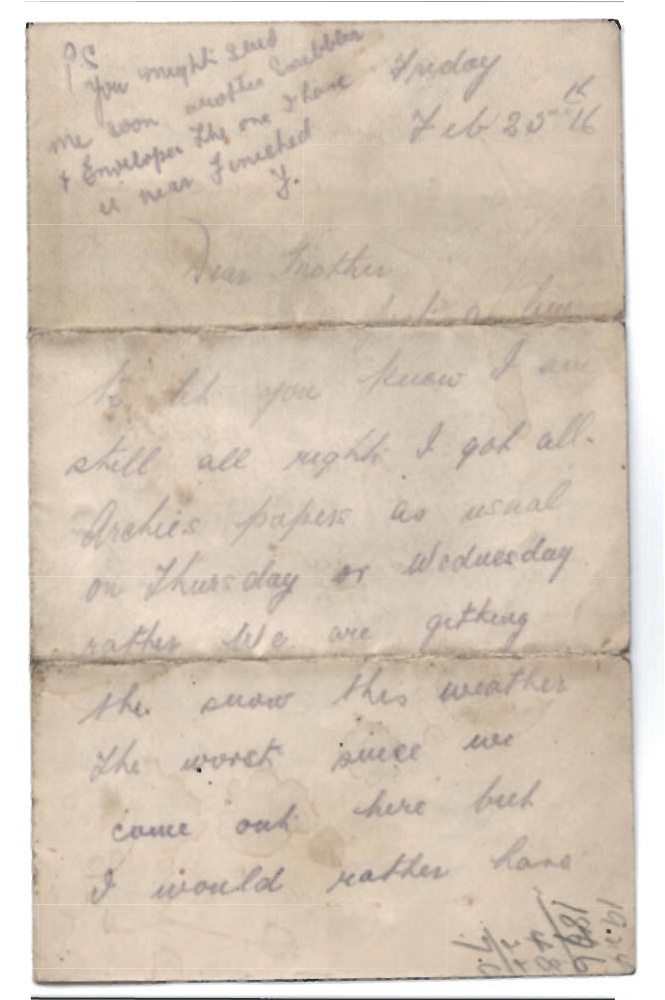 P.S
You might send
me soon another Scribbler
& Envelopes The one I have
is near Finished
Y.
Friday
Feb 25th 16
Dear Mother
Just a line
to let you know I am
still all right I got all
Archies papers as usual
on Thursday or Wednesday
rather We are getting
the snow this weather
The worst since we
came out here but
I would rather have